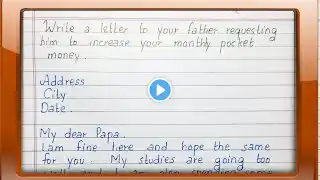 Write a letter to your father requesting
him to increase your monthly pocket
money.
Address
City
Date.
My dear Papa.
I am fine here and hope the same
for you. My studies are going too